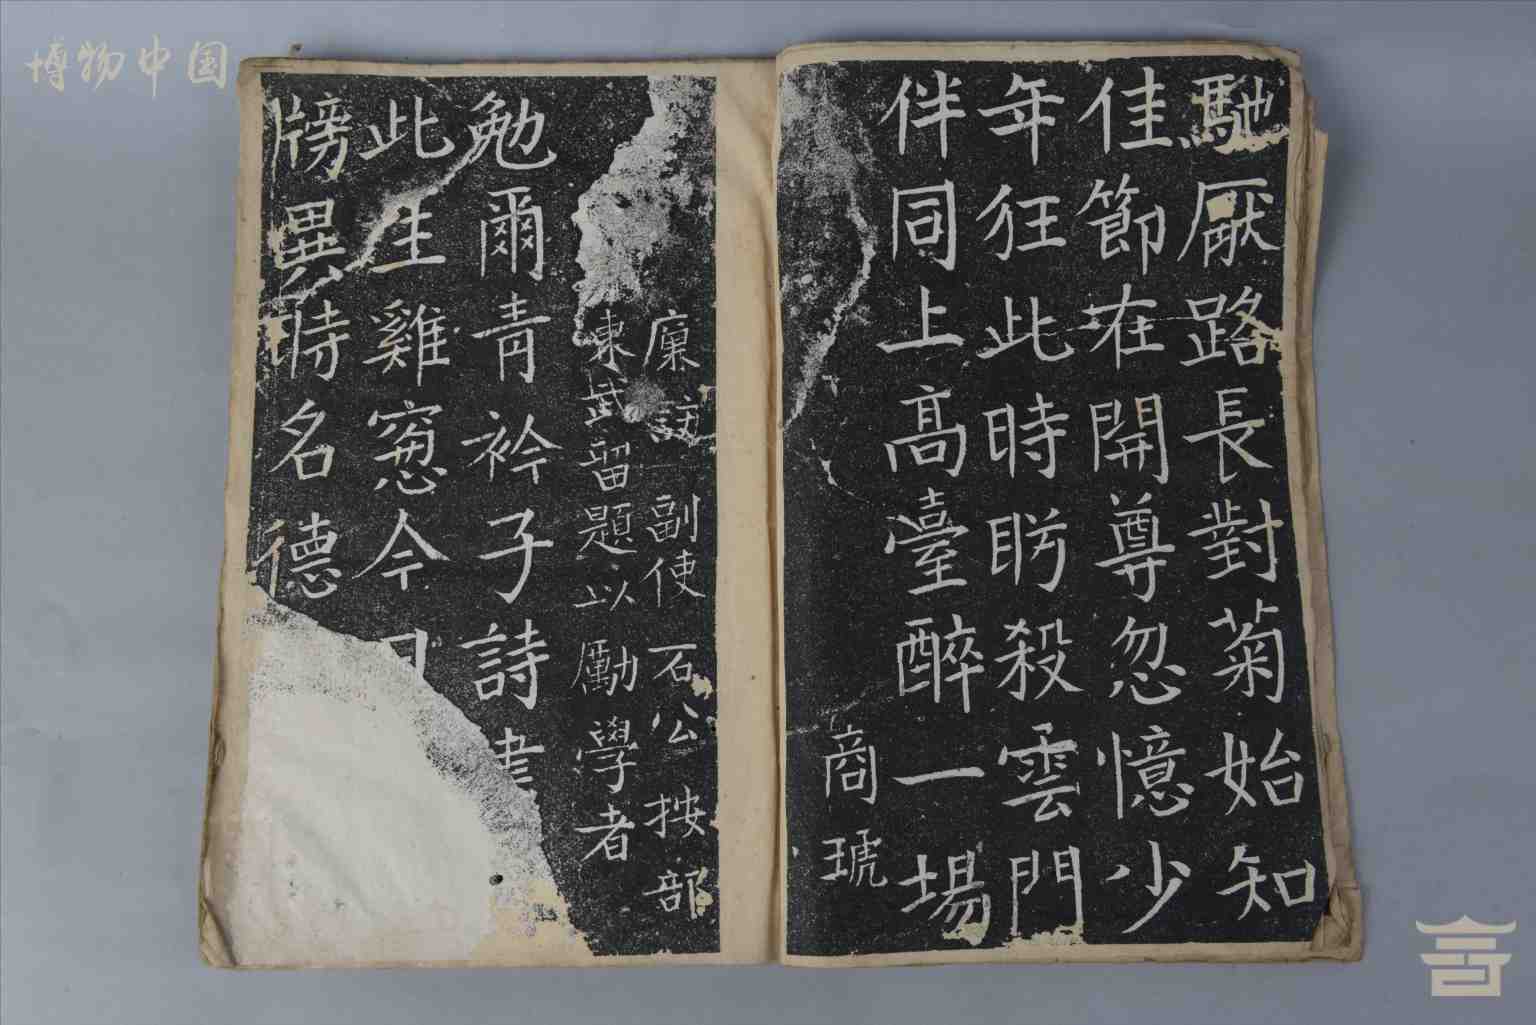 博物中国
馳厭路長對菊始知
佳節在開尊忽憶少
年狂此時眄殺雲門
伴同上高臺醉一場
商琥
廉訪副使石公按部
東武留題以勵學者
勉爾青衿子詩書
此生雞窻今日
牓異時名德